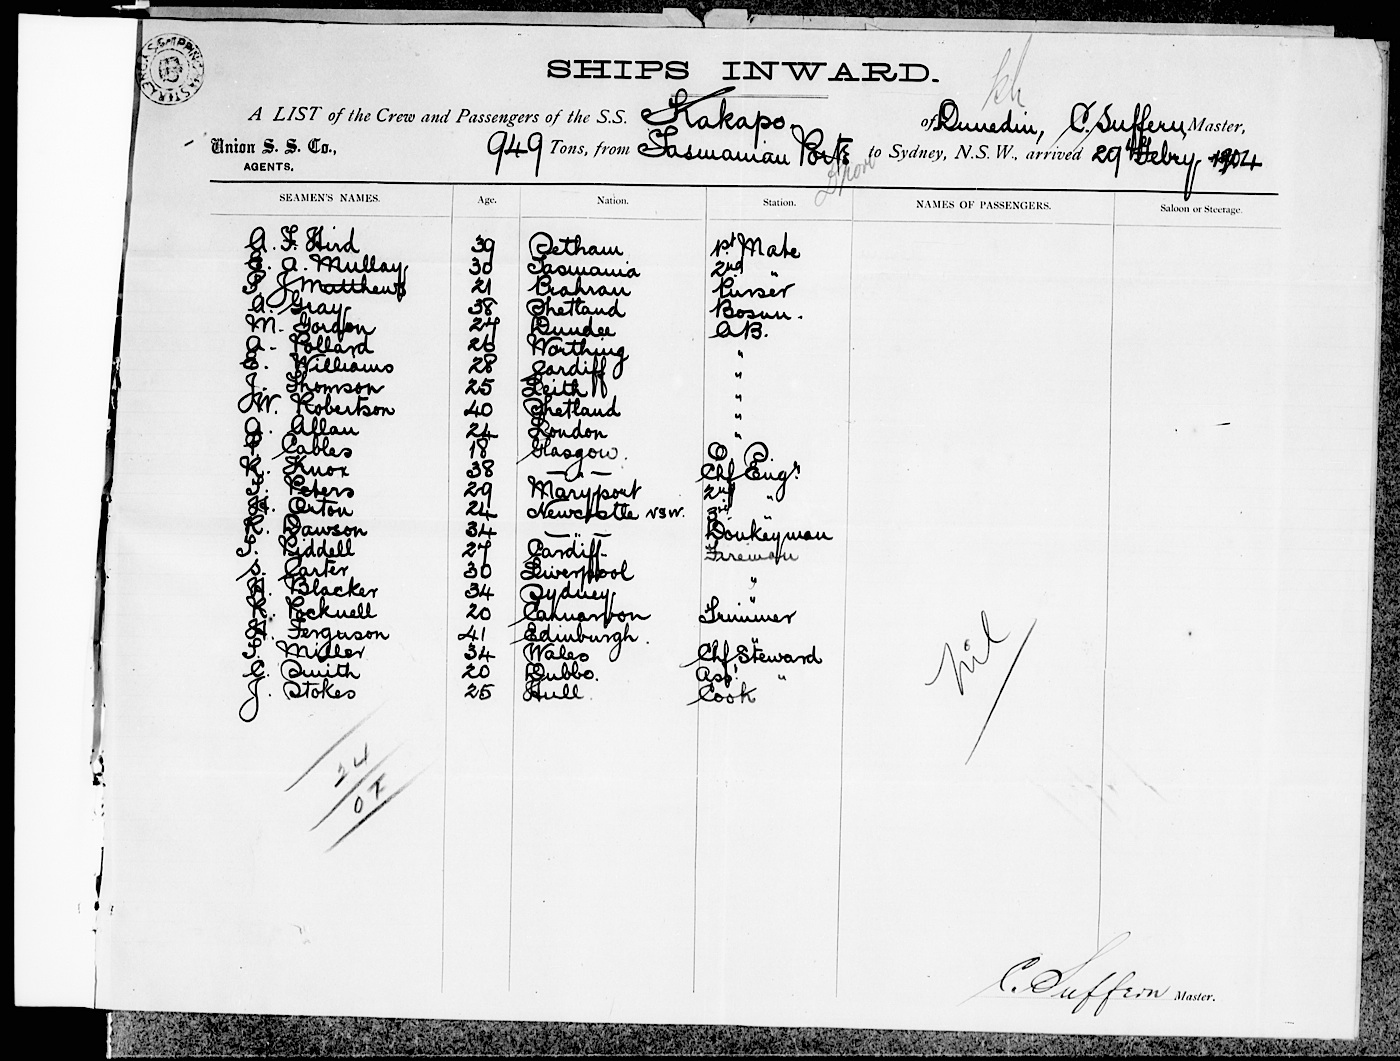 SHIPS INWARD.
A LIST of the Crew and Passengers of the S.S. Kakapo of Dunedin, C. Suffern Master,
Union S. S. Co., 949 Tons, from Tasmanian Ports to Sydney, N.S.W., arrived 29th Febry 1904
AGENTS.
SEAMEN'S NAMES. Age. Nation. Station. NAMES OF PASSENGERS. Saloon or Steerage.
A. F. Hird 39 Petham 1st Mate
A. Mullay 30 Tasmania 2nd "
P. J. Matthews 21 Prahran Purser
A. Gray 38 Shetland Bosun.
M. Gordon 27 Dundee A.B.
A. Pollard 26 Worthing "
Williams 28 Cardiff "
J. Thomson 25 Leith "
W. Robertson 40 Shetland "
A. Allan 24 London "
Cables 18 Glasgow. O
R. Knox 38 — " — Chf Engr
Peters 29 Maryport 2nd "
Orton 24 Newcastle NSW. 3rd "
Dawson 34 — " — Donkeyman
Liddell 27 Cardiff Fireman
S. Carter 30 Liverpool "
H. Blacker 34 Sydney "
Locknell 20 Carnarvon Trimmer
Ferguson 41 Edinburgh. "
Miller 34 Wales Chf Steward
C. Smith 20 Dubbo. Asst "
J. Stokes 25 Hull Cook
nil
24
C. Suffern Master.